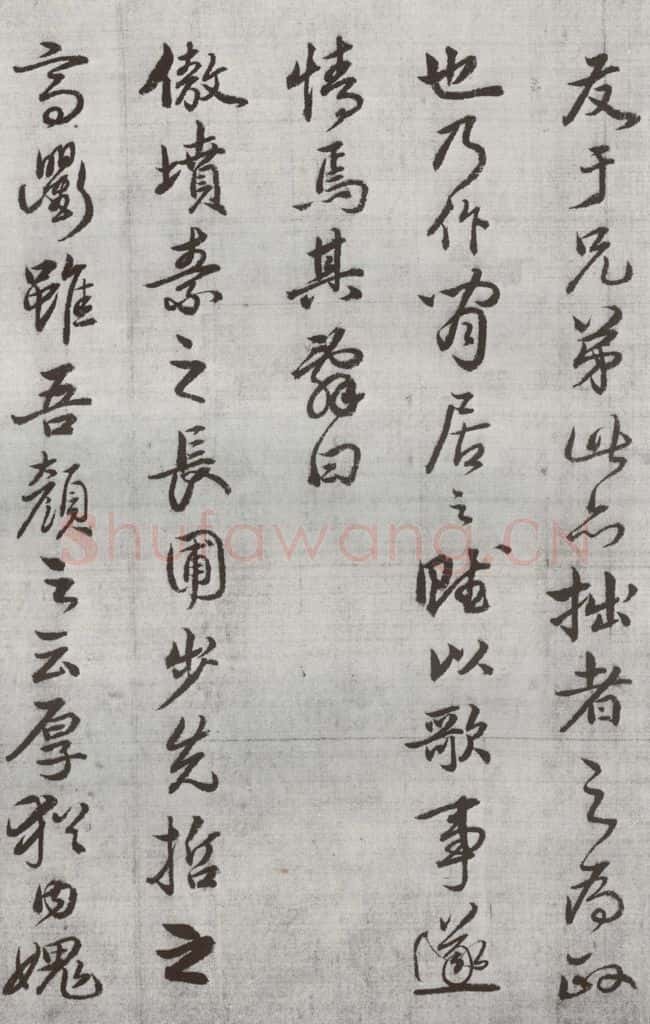 友于兄弟此亦拙者之為政
也乃作閑居之賦以歌事遂
情焉其辭曰
傲墳素之長圃步先哲之
高衢雖吾顏之云厚猶內媿
Shufawang.CN